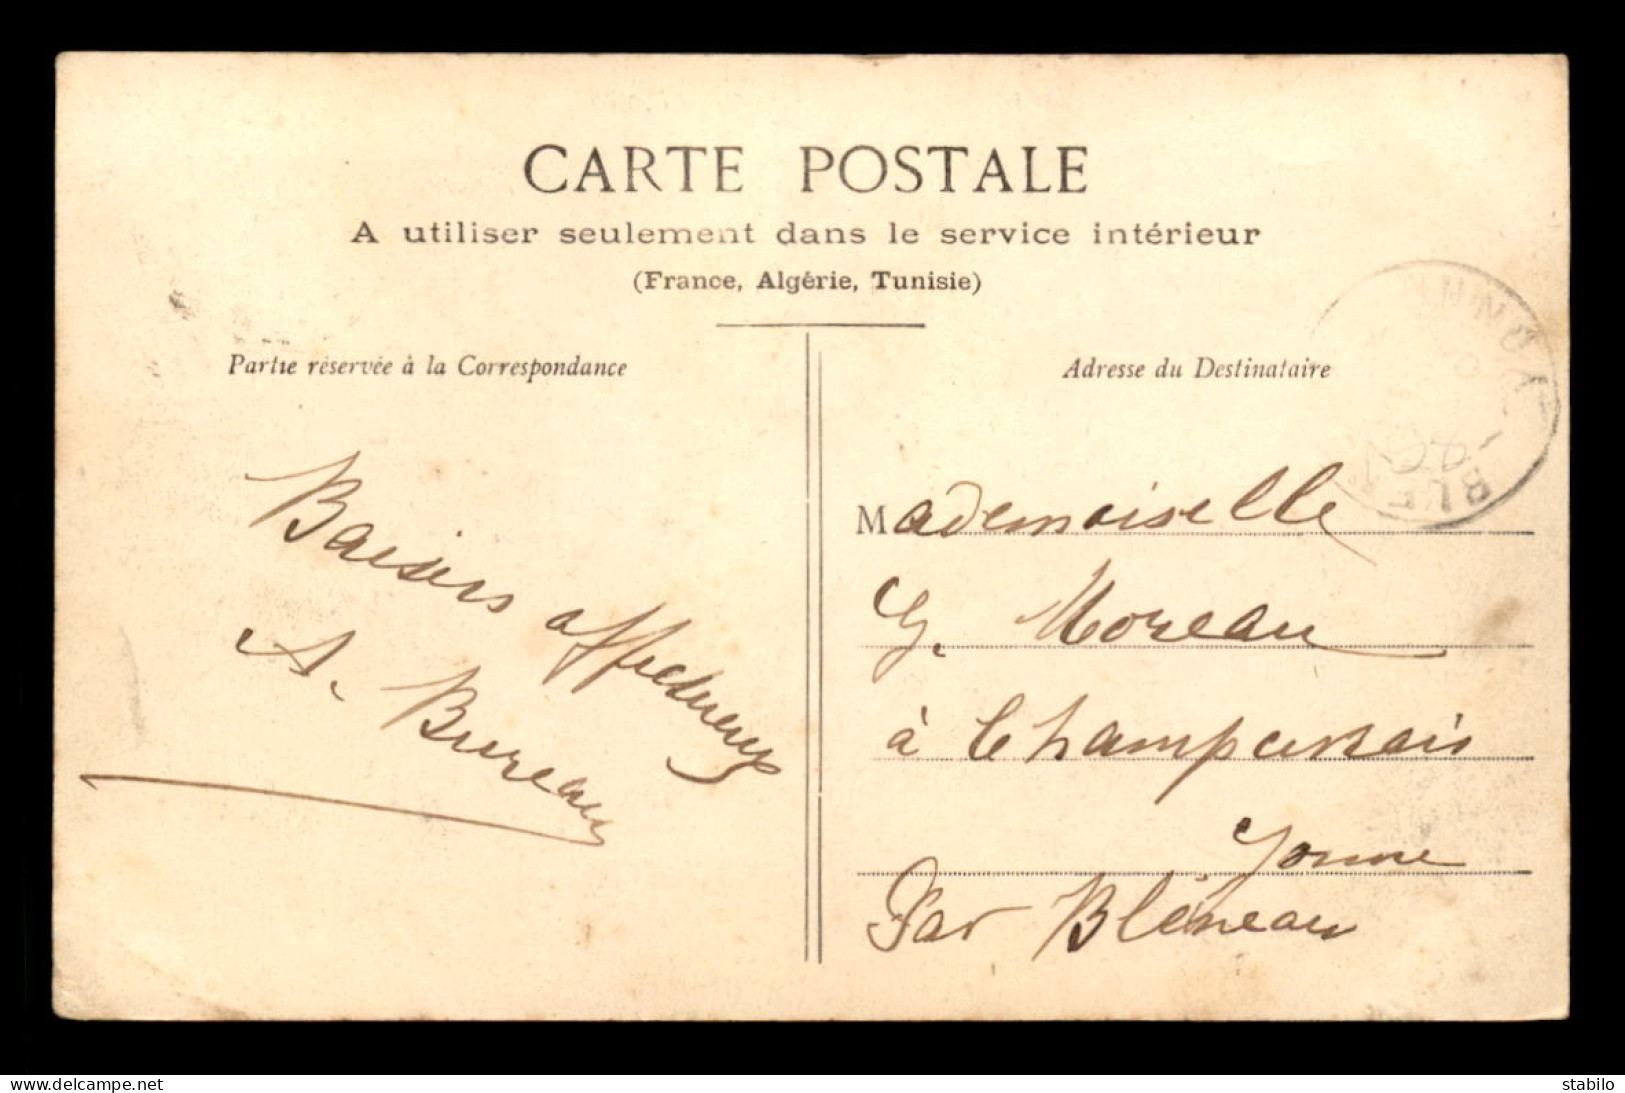 CARTE POSTALE
A utiliser seulement dans le service intérieur
(France, Algérie, Tunisie)
Partie réservée à la Correspondance
Baisers affectueux
A. Bureau
Adresse du Destinataire
Mademoiselle
G. Moreau
à Champcevrais
Yonne
Par Bléneau
www.delcampe.net
stabilo